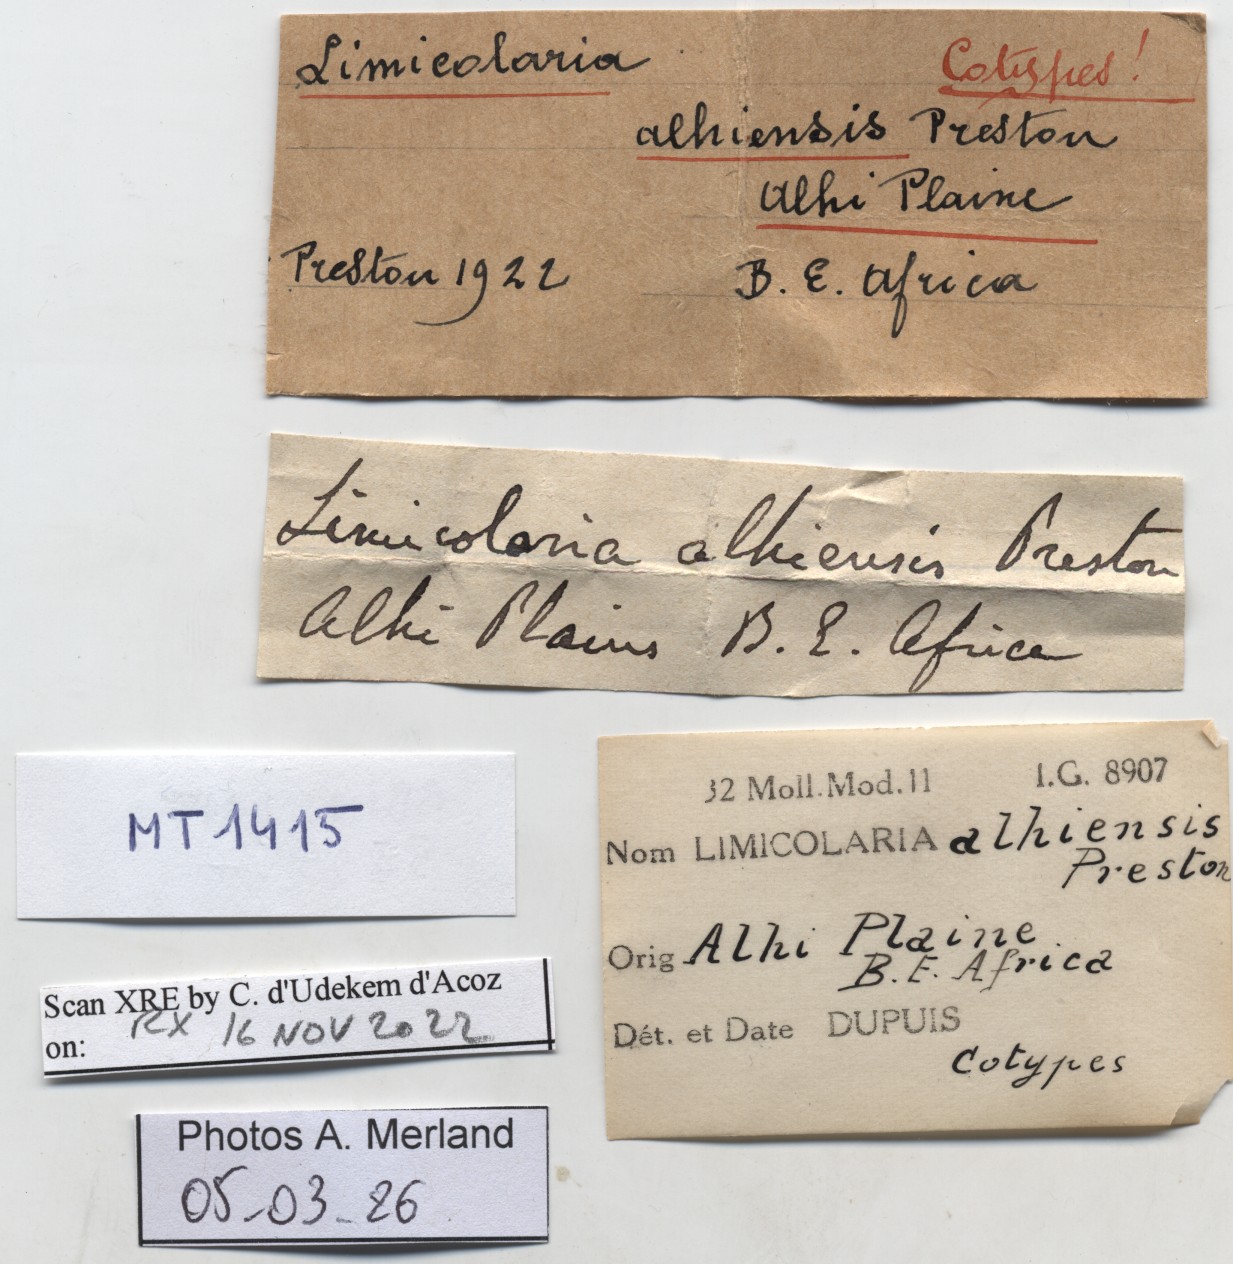 Limicolaria Cotypes!
alhiensis Preston
Alhi Plaine
Preston 1922 B. E. Africa
Limicolaria alhiensis Preston
Alhi Plains B. E. Africa
MT1415
Scan XRE by C. d'Udekem d'Acoz
on: RX 16 NOV 2022
Photos A. Merland
05-03-26
32 Moll.Mod.II I.G. 8907
Nom LIMICOLARIA alhiensis
Preston
Orig Alhi Plaine
B.E. Africa
Dét. et Date DUPUIS
Cotypes